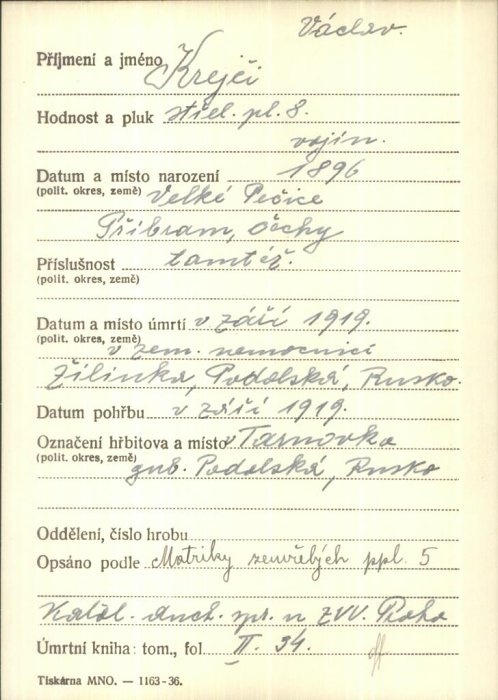 Václav.
Příjmení a jméno Krejči
Hodnost a pluk střel. pl. 8.
vojín.
Datum a místo narození 1896
(polit. okres, země) Velké Pečice
Příbram, Čechy
Příslušnost tamtéž.
(polit. okres, země)
Datum a místo úmrtí v září 1919.
(polit. okres, země) v zem. nemocnici
Žilinka, Podolská, Rusko.
Datum pohřbu v září 1919.
Označení hřbitova a místo Tarnovka
(polit. okres, země) gub. Podolská, Rusko
Oddělení, číslo hrobu
Opsáno podle Matriky zemřelých ppl. 5
Katol. duch. spr. u ZVV. Praha
Úmrtní kniha: tom., fol. II. 34.
Tiskárna MNO. — 1163-36.